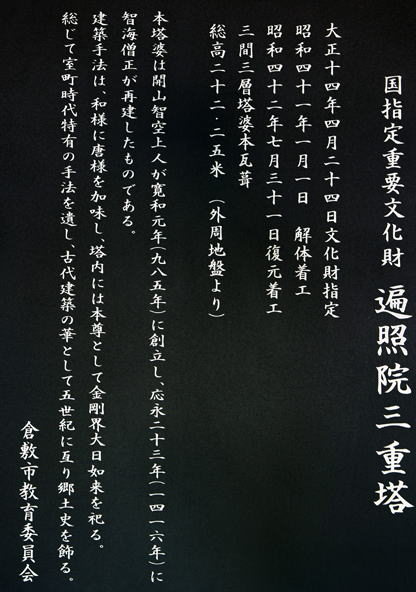 国指定重要文化財 遍照院三重塔
大正十四年四月二十四日文化財指定
昭和四十一年一月一日 解体着工
昭和四十二年七月三十一日復元着工
三間三層塔婆本瓦葺
総高二十二・二五米 (外周地盤より)
本塔婆は開山智空上人が寛和元年(九八五年)に創立し、応永二十三年(一四一六年)に
智海僧正が再建したものである。
建築手法は、和様に唐様を加味し、塔内には本尊として金剛界大日如来を祀る。
総じて室町時代特有の手法を遺し、古代建築の華として五世紀に亙り郷土史を飾る。
倉敷市教育委員会